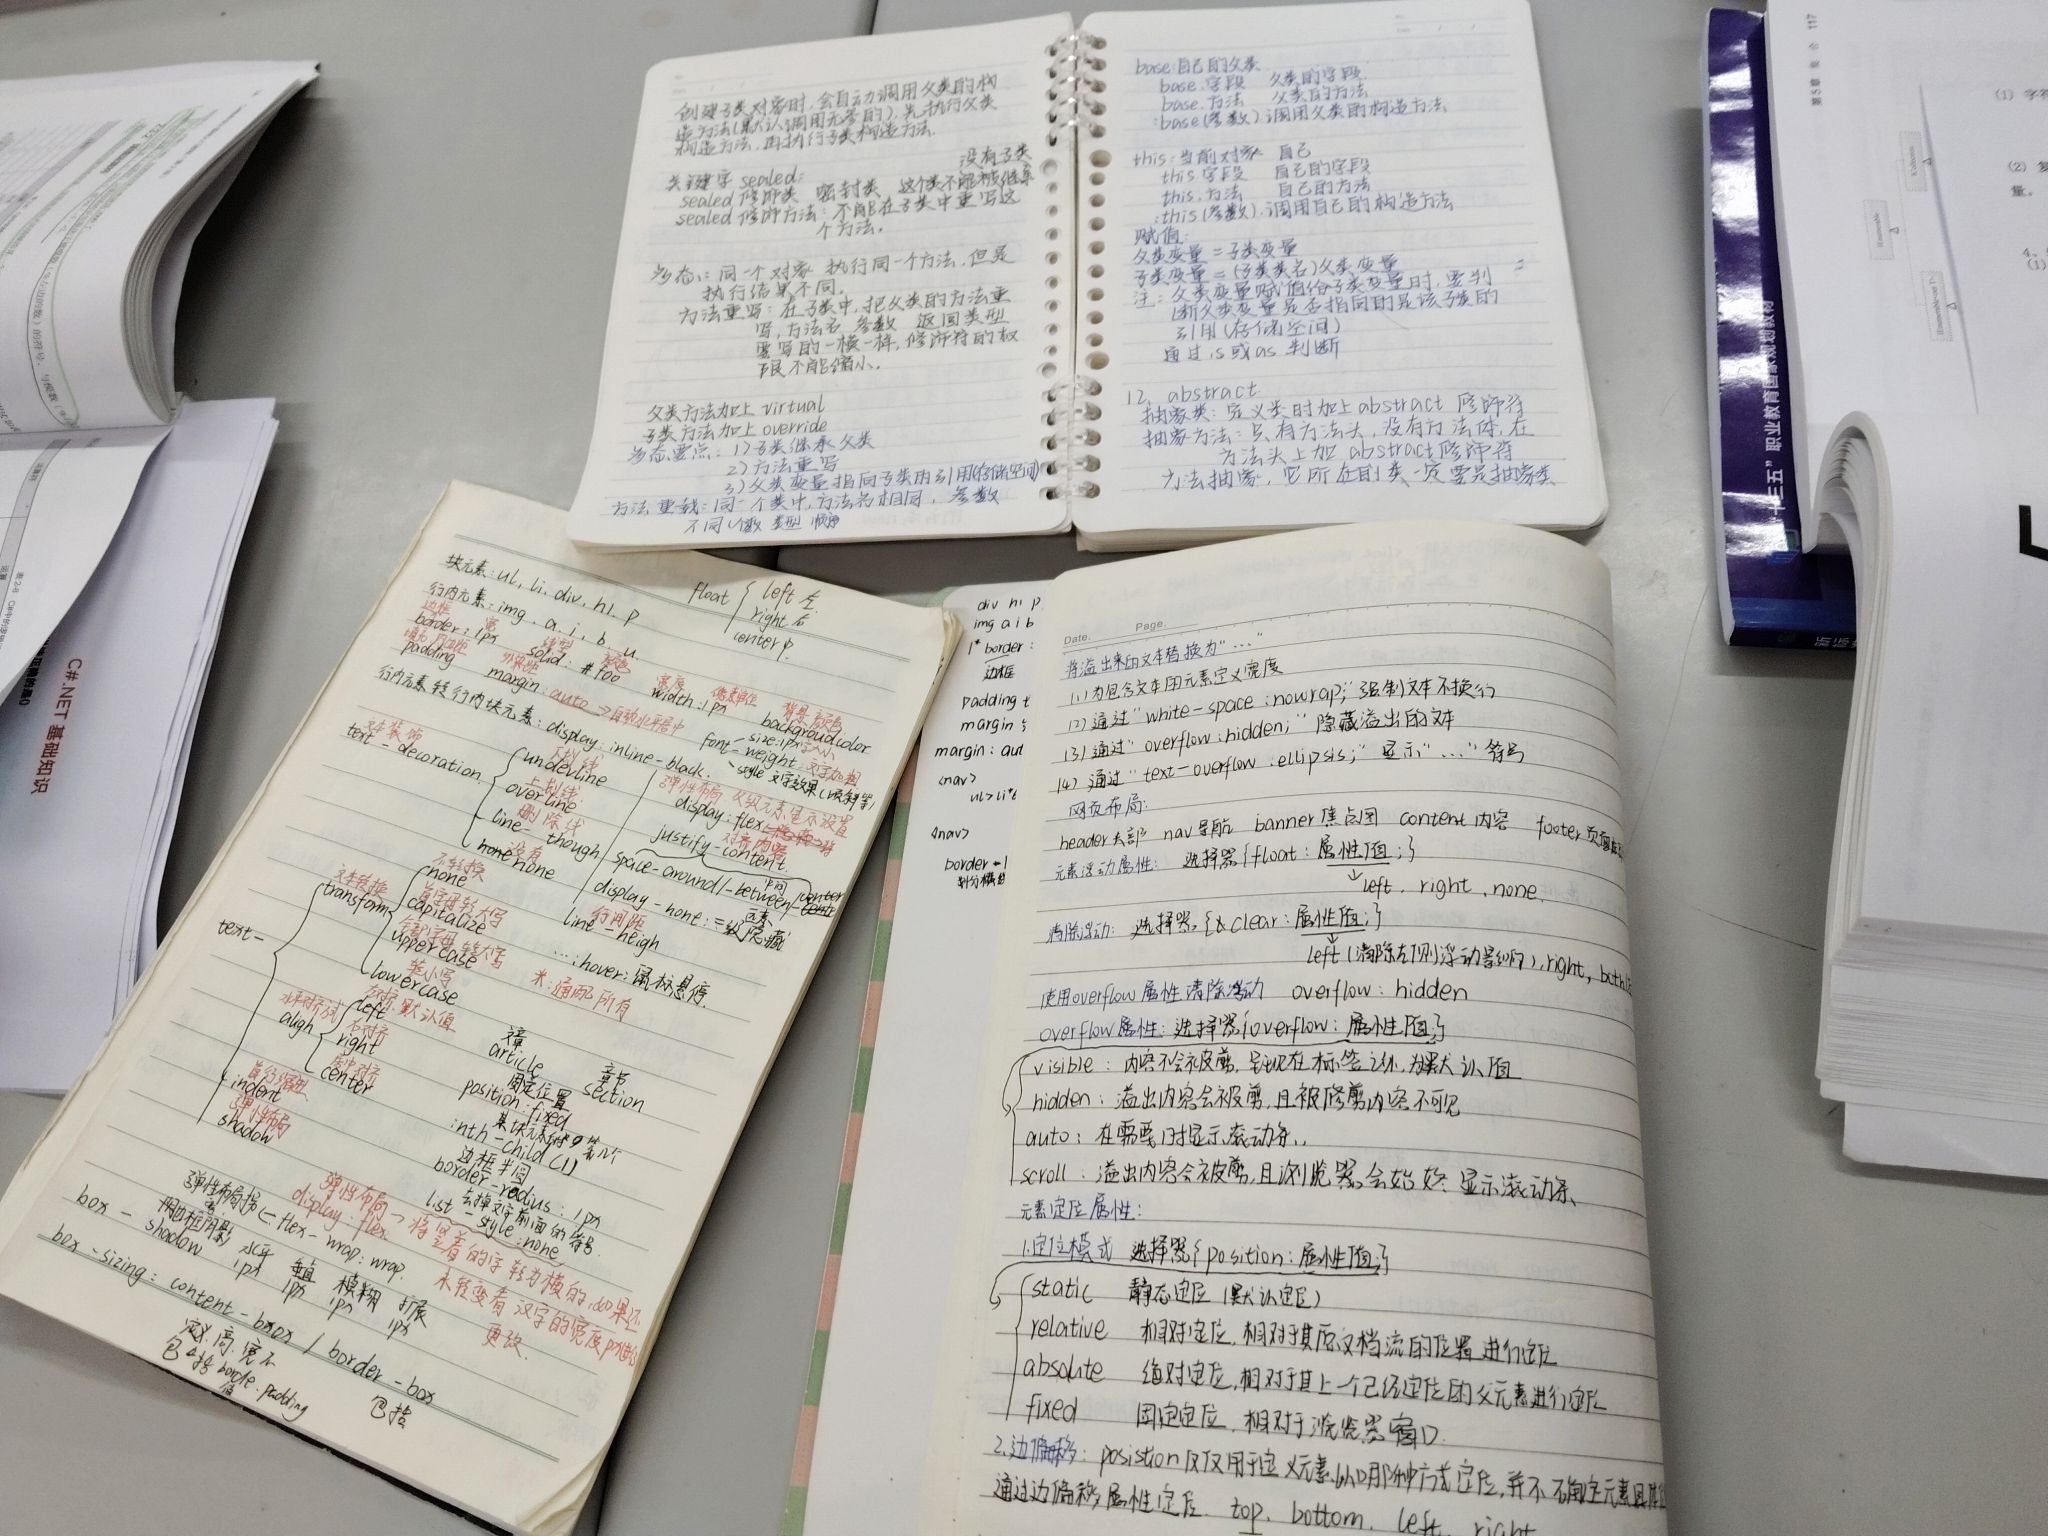 创建子类对象时,会自动调用父类的构
造方法(默认调用无参的),先执行父类
构造方法,再执行子类构造方法.
没有子类
关键字 sealed:
sealed 修饰类 密封类 这个类不能被继承
sealed 修饰方法:不能在子类中重写这
个方法。
多态:同一个对象 执行同一个方法,但是
执行结果不同。
方法重写:在子类中,把父类的方法重
写,方法名 参数 返回类型
要写的一模一样,修饰符的权
限不能缩小。
父类方法加上 virtual
子类方法加上 override
多态要点:1)子类继承父类
2)方法重写
3)父类变量指向子类的引用(存储空间)
方法重载:同一个类中,方法名相同,参数
不同(个数 类型 顺序
base:自己的父类
base.字段 父类的字段
base.方法 父类的方法
:base(参数).调用父类的构造方法
this:当前对象 自己
this.字段 自己的字段
this.方法 自己的方法
:this(参数).调用自己的构造方法
赋值:
父类变量=子类变量
子类变量=(子类类名)父类变量
注:父类变量赋值给子类变量时,要判
断父类变量是否指向的是该子类的
引用(存储空间)
通过is或as 判断
12、abstract
抽象类:定义类时加上abstract 修饰符
抽象方法:只有方法头,没有方法体,在
方法头上加 abstract修饰符
方法抽象,它所在的类一定要是抽象类
块元素:ul, li, div, h1, p
float { left 左
right 右
center 中.
行内元素:img, a, i, b, u.
边框 宽 线型 颜色
border:1px solid:#foo
填充 内边距 外边距 宽度 像素单位 背景颜色
padding margin:auto→自动水平居中 width:1px backgroudcolor
行内元素转行内块元素:display:inline-black.
font-size:1px字大小
-weight.文字加粗
-style 文字效果(倾斜等)
文本装饰
text-decoration.
下划线
underline
上划线
overline
删除线
line-though
没有
none none
弹性布局 父级元素显示设置
display:flex
对齐内容
justify-content.
space-around/-between/center
中间
display-none:二级隐藏
行间距
line-heigh
…:hover:鼠标悬停.
*:通配所有
text-
文本转换
transform
不转换
none
首字母转大写
capitalize
全部字母转大写
uppercase
转小写
lowercase
水平对齐方式
aligh
左对齐.默认值
left
右对齐
right
居中对齐
center
首行缩进
indent
弹性布局
shadow
文章
article
章节
section
固定位置
position:fixed
:nth-child(1)
边框半圆
border-radius:1px
去掉文字前面的符号.
list-style:none
弹性布局
display:flex→将竖着的字转为横的,如果还
未转变看汉字的宽度px进行
更改.
弹性布局换
flex-wrap:wrap.
box-shadow 水平 垂直 模糊 扩展
1px 1px 1px 1px
box-sizing:content-boxox / border-box
定义高,宽不
包括 borde.padding
值
包括
div h1 p
img a i b
1* border:
边框
padding
margin
margin:aut
<nav>
ul>li*6
<nav>
border-1
Date. Page.
将溢出来的文本替换为"…"
(1)为包含文本的元素定义宽度
(2)通过"white-space:nowrap;"强制文本不换行
(3)通过"overflow:hidden;"隐藏溢出的文本
(4)通过"text-overflow:ellipsis;"显示"…"符号
网页布局:
header头部 nav导航 banner焦点图 content内容 footer页面
元素浮动属性: 选择器{float:属性值;}
left, right, none.
清除浮动: 选择器{&clear:属性值;}
left(清除左侧浮动影响),right, both
使用overflow属性清除浮动 overflow:hidden
overflow属性:选择器{overflow:属性值;}
visible:内容不会被剪,呈现在标签之外,为默认值
hidden:溢出内容会被剪,且被修剪内容不可见
auto:在需要时显示滚动条.
scroll:溢出内容会被剪,且浏览器会始终显示滚动条
元素定位属性:
1.定位模式 选择器{position:属性值;}
static 静态定位(默认定位)
relative 相对定位,相对于其原文档流的位置进行定位
absolute 绝对定位,相对于其上一个已经定位的父元素进行定位
fixed 固定定位,相对于浏览器窗口
2.边偏移:posistion仅仅用于定义元素以哪种方式定位,并不确定元素具体位
通过边偏移属性定位. top, bottom, left, right
C#.NET 基础知识
"十三五"职业教育国家规划教材
第5章 117